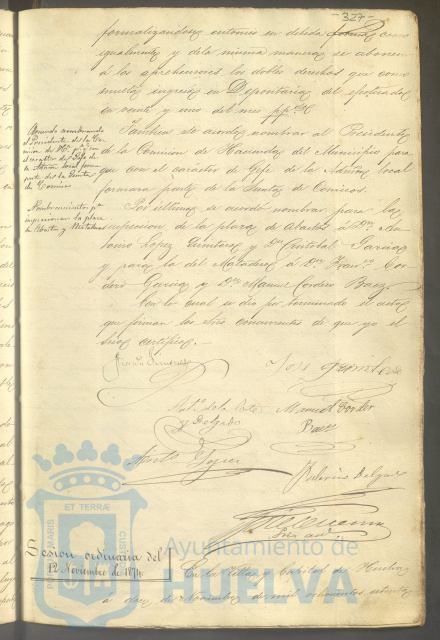 -327-
formalizandose entonces en debida forma; como
igualmente y de la misma manera se abonen
á los aprehensores los dobles derechos que como
multa ingresó en Depositaria del
en veinte y uno del mes
Tambien se acordó nombrar al Presidente
de la Comision de Hacienda del Municipio para
que con el carácter de Gefe de la Admon local
formara parte de la Junta de Comisos.
Por último se acordó nombrar para la
inspeccion de la plaza de Abastos á Dn. An-
tonio Lopez Quintero y Dn. Cristobal Garcia
y para la del Matadero á Dn. Franco. Cor-
dero Garcia y Dn. Manuel Cordero Baez.
Con lo cual se dio por terminado el acto
que firman los Sres concurrentes de que yo el
Srio certifico.
Acuerdo nombrando
al Presidente de la Co-
mision de
el carácter de Gefe de
la Admon local forme
parte de la Junta
de Comisos
Nombramientos pa.
inspeccionar la plaza
de Abastos y Matadero
José
de la Corte
y Delgado
Manuel Cordero
Baez
Lopez
Delgado
Srio
Sesion ordinaria del
12 Noviembre de 1874
En la Villa y Capital de Huelva
á doce de Noviembre de mil ochocientos setenta
PORTUS MARIS ET TERRÆ CUSTODIA
Ayuntamiento de
HUELVA